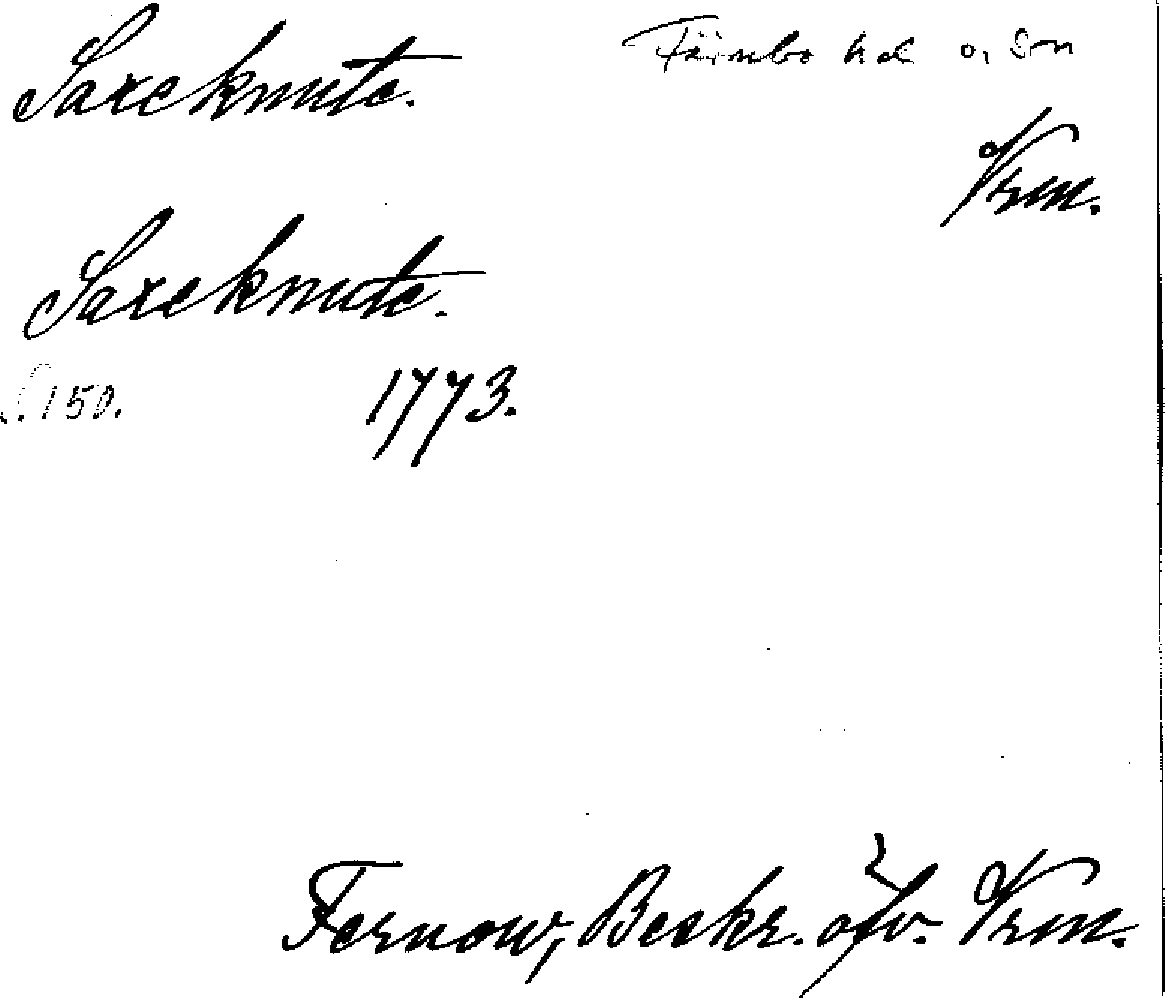 Saxeknute. Färnebo hd o, sn
Vrm.
Saxeknute.
S. 150. 1773.
Fernow, Beskr. öfv. Vrm.